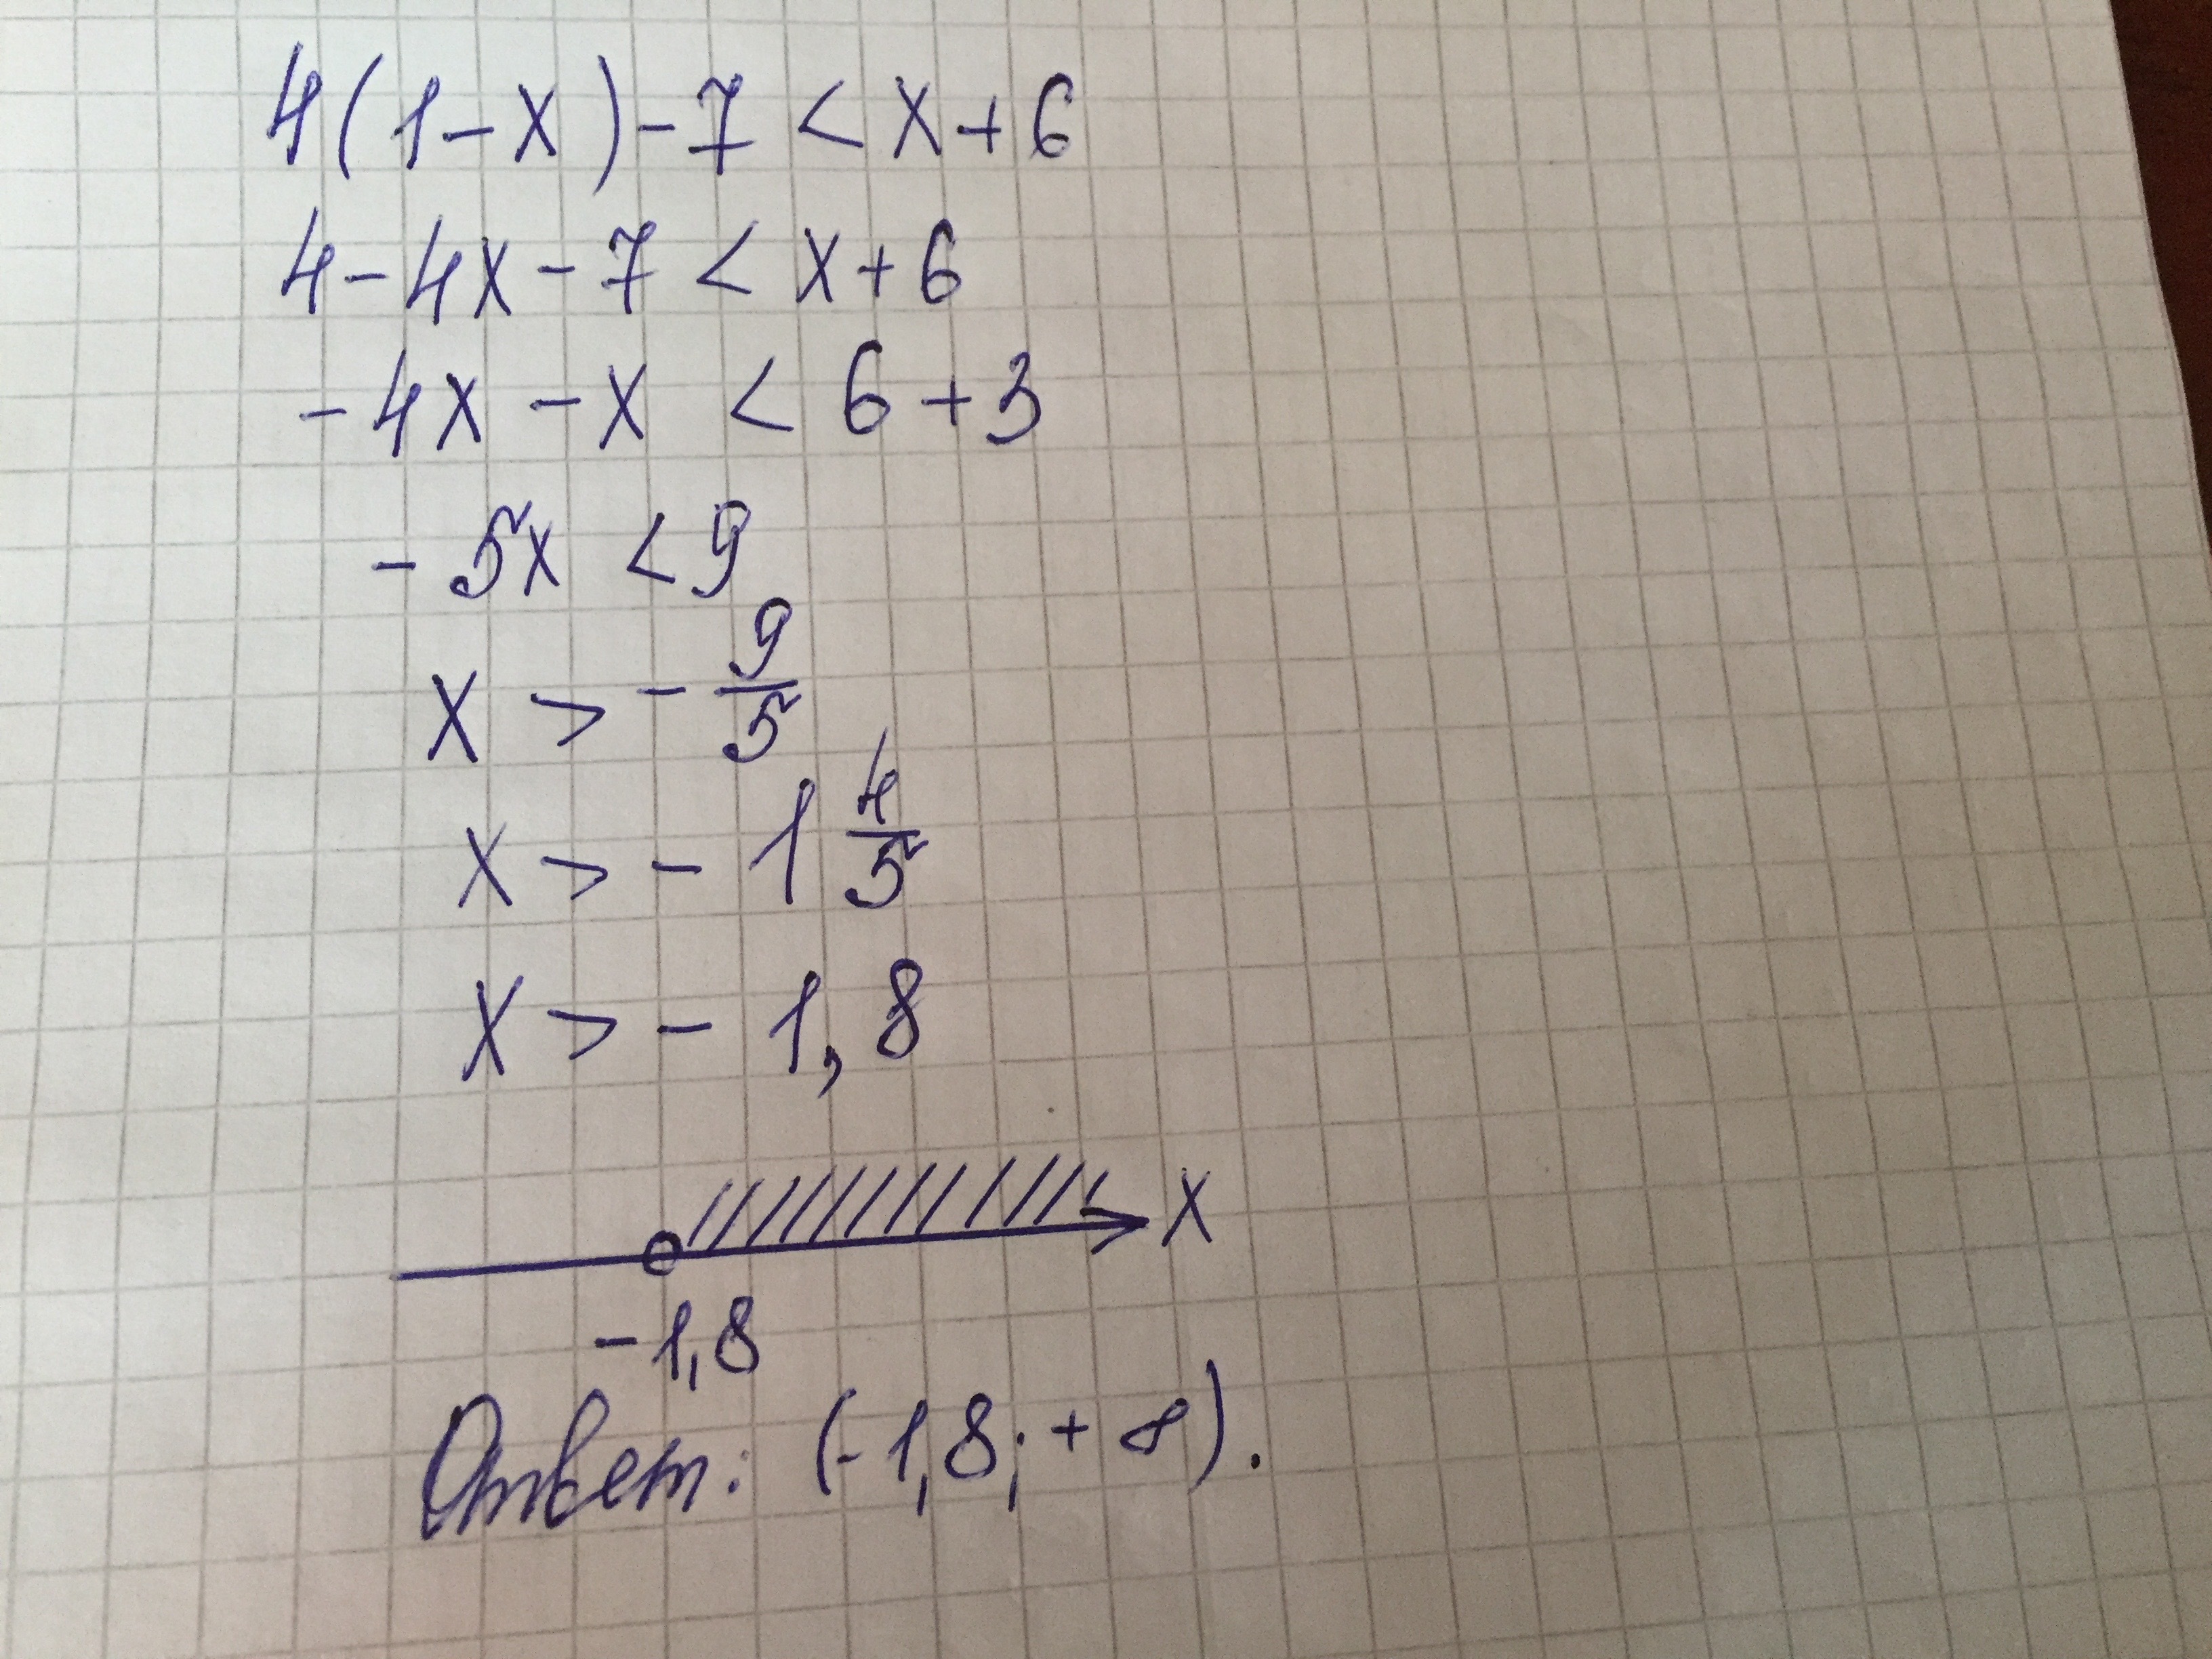 4(1-x)-7 < x+6
4-4x-7 < x+6
-4x-x < 6+3
-5x < 9
x > -9/5
x > -1 4/5
x > -1,8
x
-1,8
Ответ: (-1,8; +∞).